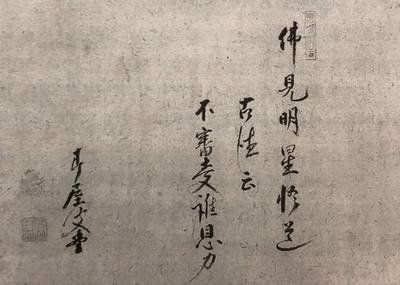 佛見明星悟道
古德云
不審受誰恩力
屋